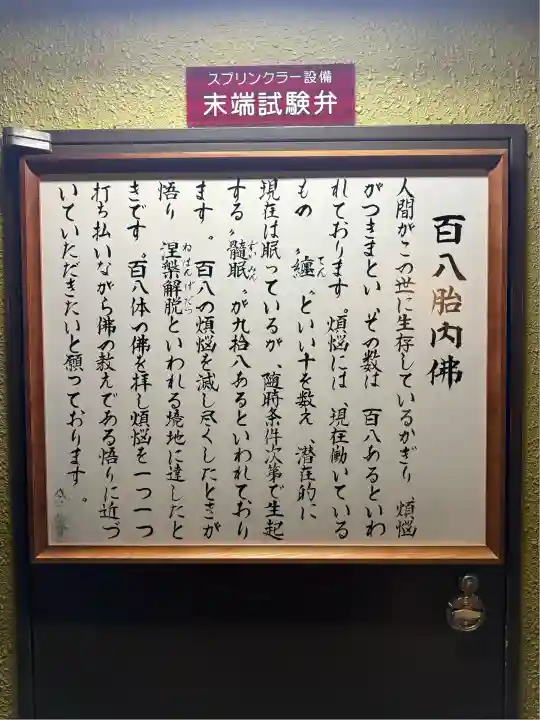 スプリンクラー設備
末端試験弁
百八胎内佛
人間がこの世に生存しているかぎり 煩悩
がつきまとい、その数は 百八あるといわ
れております。煩悩には、現在働いている
もの〝纏〟といい十を数え、潜在的に
現在は眠っているが、随時条件次第で生起
する〝髓眠〟が九拾八あるといわれており
ます。 百八の煩悩を滅し尽くしたときが
悟り 涅槃解脱といわれる境地に達したと
きです。百八体の佛を拝し煩悩を一つ一つ
打ち払いながら佛の教えである悟りに近づ
いていただきたいと願っております。
てん
ずいみん
ねはんげだつ